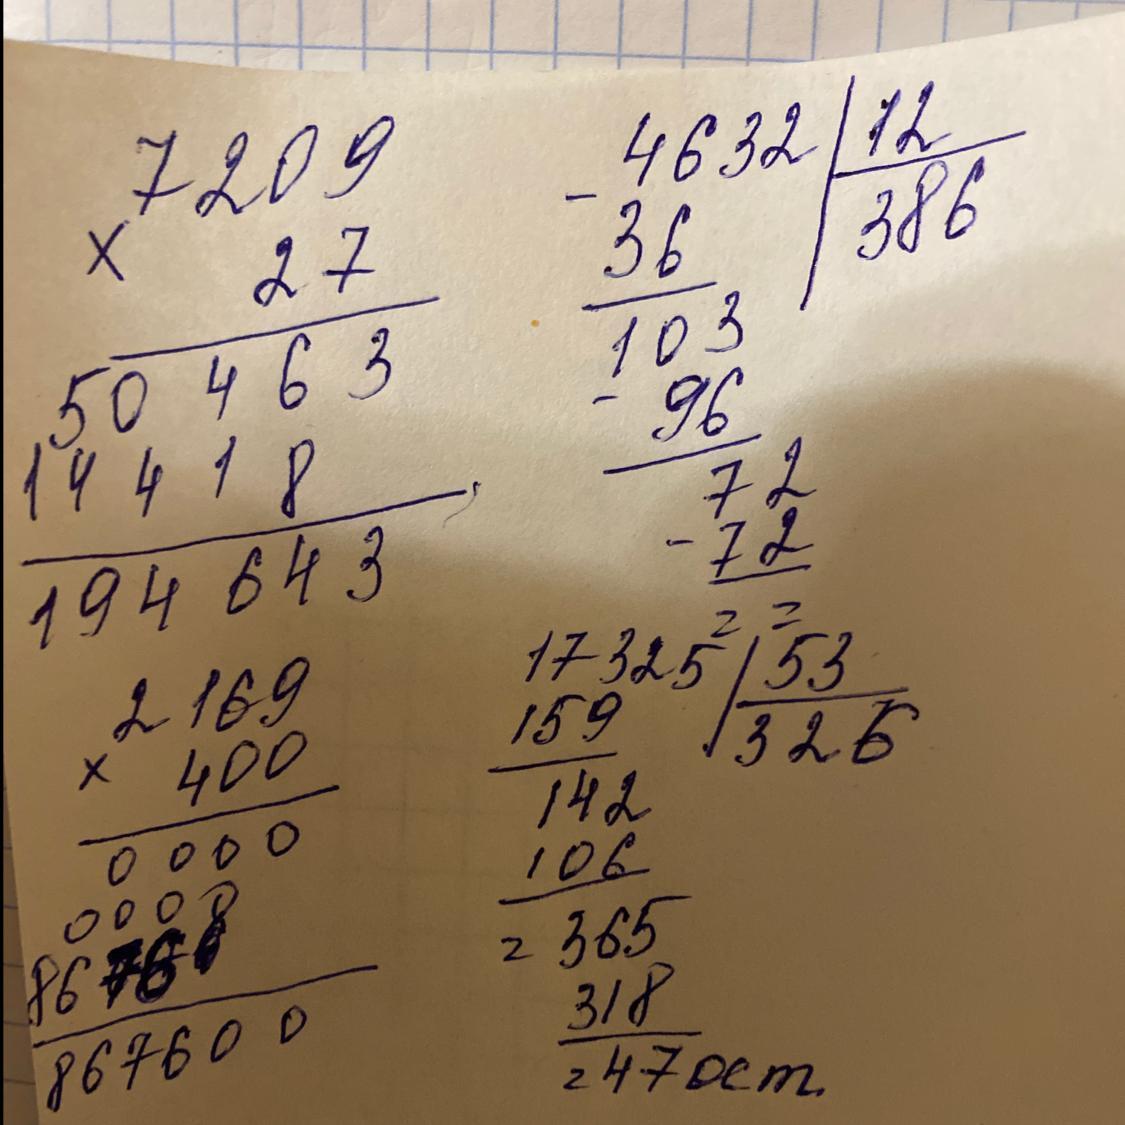 7209
× 27
50463
14418
194643
- 4632 | 12
36 386
103
- 96
72
- 72
= =
2169
× 400
0000
0000
8676
867600
17325 | 53
159 326
142
106
= 365
318
= 47 ост.